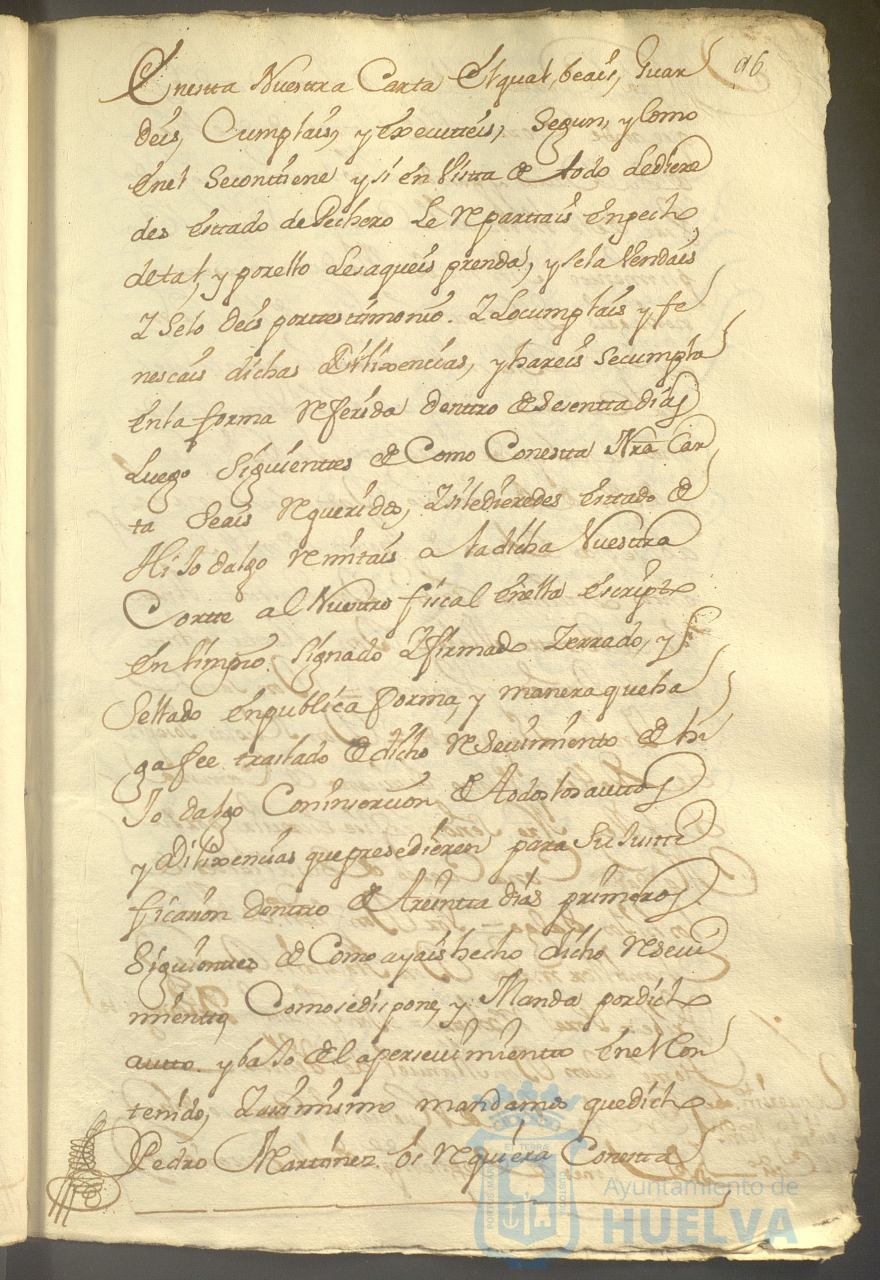 96
Enestta Nuestra Carta El qual, beais, Guar
deis, Cumplais, y Executteis, Segun, y Como
Enel Secontiene y si en Vistta de todo Lediere
des Esttado de Pechero Le Reparttais Enpecho
detal, y porello Lesaqueis prenda, y sela Vendais
Y Selo deis porttesttimonio. Y Locumplais y fe
nescais dichas Dilixencias, y hareis Secumpla
Enla forma Referida dentro de Sesentta dias
Luego Siguienttes de Como Conestta Nrã Car
ta Seais Requerido, Ysiledieredes Esttado de
Hijo dalgo Remitais a la dicha Nuestra
Cortte al Nuestro fiscal Enella Escripto
En limpio. Signado Yfirmado Zerrado, y
Sellado Enpublica forma, y manera queha
ga fee traslado de dicho Resevimiento de hi
Jo dalgo Coninsercion de todos los auttos
y Dilixencias que presedieren para Su Justti
ficacion dentro de treintta dias primeros
Siguienttes de Como ayais hecho dicho Resevi
mientto, Comosedispone, y Manda pordicho
autto. y bajo del apersevimientto Enel Con
tenido, Yasimismo mandamos quedicho
Pedro Martinez os Requiera Conestta
Ayuntamiento de
HUELVA